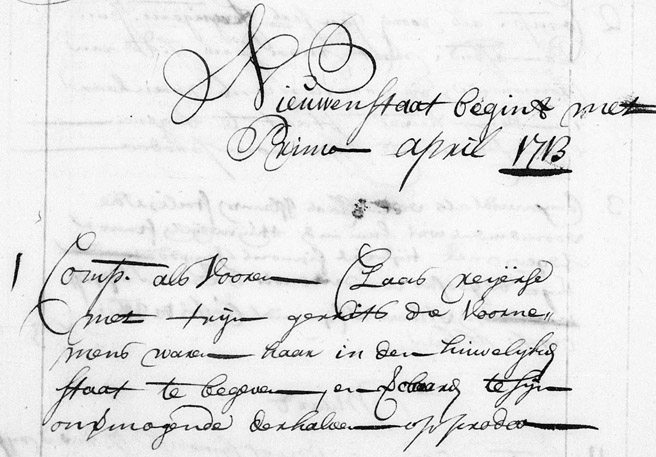 Nieuwen staat begint met
Primo april 1713
1 Comp. als Vooren Claas reijerse
met trijn gerrits die Voorne„
mens waren haar in den huwelijken
staat te begeven, en te sijn
onvermogende derhalven pro deo